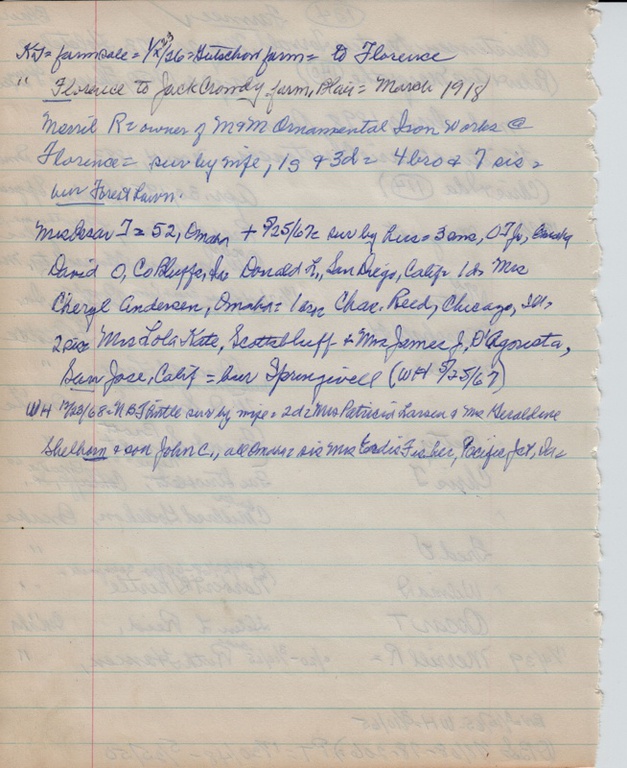 farm sale = 1/23/26 = Hutschon farm = to Florence
" Florence to Jack Crondy farm, Blair = March 1918
Merril R = owner of M & M Ornamental Iron Works @
Florence = sur by wife, 1s & 3d = 4 bro & 7 sis =
bur Forest Lawn.
Mrs Oscar T = 52, Omaha + 5/25/67 = sur by hus = 3 sons, O T Jr, Omaha
David O, Co Bluffs, Ia Donald L, San Diego, Calif 1 d = Mrs
Cheryl Andersen, Omaha = 1 bro = Chas. Reed, Chicago, Ill =
2 sis Mrs Lola Kate, Scottsbluff + Mrs James J, D'Agosta,
San Jose, Calif = bur Springwell (WH 5/25/67)
WH /23/68 = N B T Kettle sur by wife = 2d = Mrs Patricia Larsen & Mrs Geraldine
Shelhorn & son John C., all Omaha = sis Mrs Fisher, Pacific Jct, Ia =